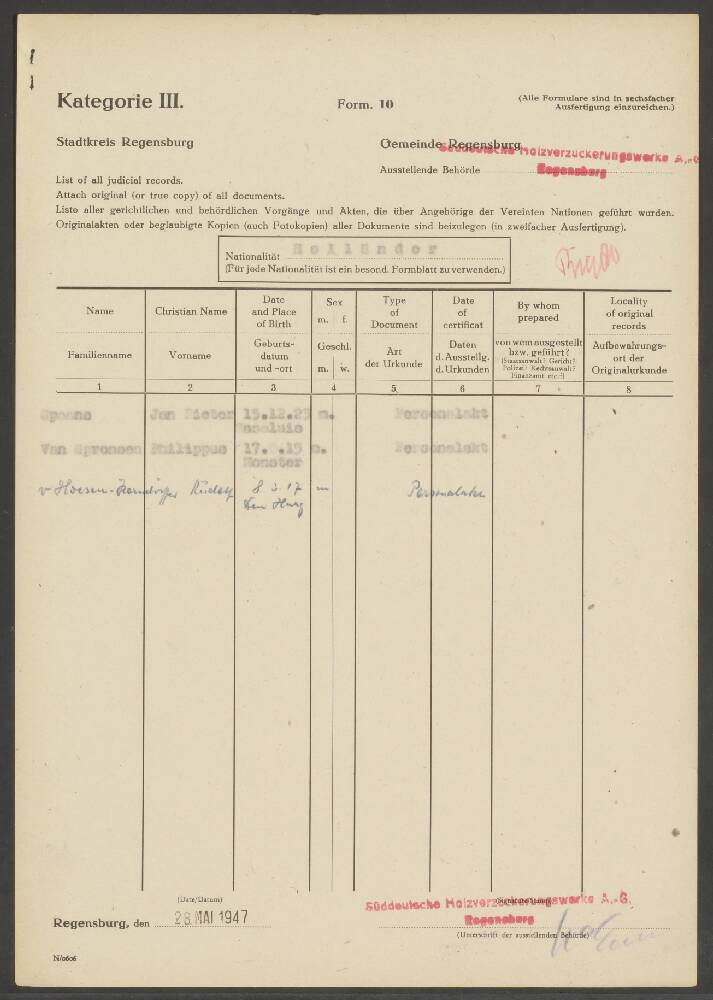 Kategorie III.
Form. 10
(Alle Formulare sind in sechsfacher
Ausfertigung einzureichen.)
Stadtkreis Regensburg
Gemeinde Regensburg
Süddeutsche Holzverzuckerungswerke A.-G.
Ausstellende Behörde
Regensburg
List of all judicial records.
Attach original (or true copy) of all documents.
Liste aller gerichtlichen und behördlichen Vorgänge und Akten, die über Angehörige der Vereinten Nationen geführt wurden.
Originalakten oder beglaubigte Kopien (auch Fotokopien) aller Dokumente sind beizulegen (in zweifacher Ausfertigung).
Nationalität Holländer
(Für jede Nationalität ist ein besond. Formblatt zu verwenden.)
Name
Familienname
Christian Name
Vorname
Date
and Place
of Birth
Geburts-
datum
und -ort
Sex
m. f.
Geschl.
m. w.
Type
of
Document
Art
der Urkunde
Date
of
certificat
Daten
d. Ausstellg.
d. Urkunden
By whom
prepared
von wem ausgestellt
bzw. geführt?
(Staatsanwalt? Gericht?
Polizei? Rechtsanwalt?
Finanzamt etc.?)
Locality
of original
records
Aufbewahrungs-
ort der
Originalurkunde
1 2 3 4 5 6 7 8
Jan Pieter 15.12.23 m. Personalakt
Van Spronsen Philippus 17. .15 m. Personalakt
Monster
Rudolf 8.3.17 m Personalakte
Den Haag
(Date/Datum)
Regensburg, den 28. MAI 1947
Süddeutsche Holzverzuckerungswerke A.-G.
Regensburg
(Unterschrift der ausstellenden Behörde)
N/0606